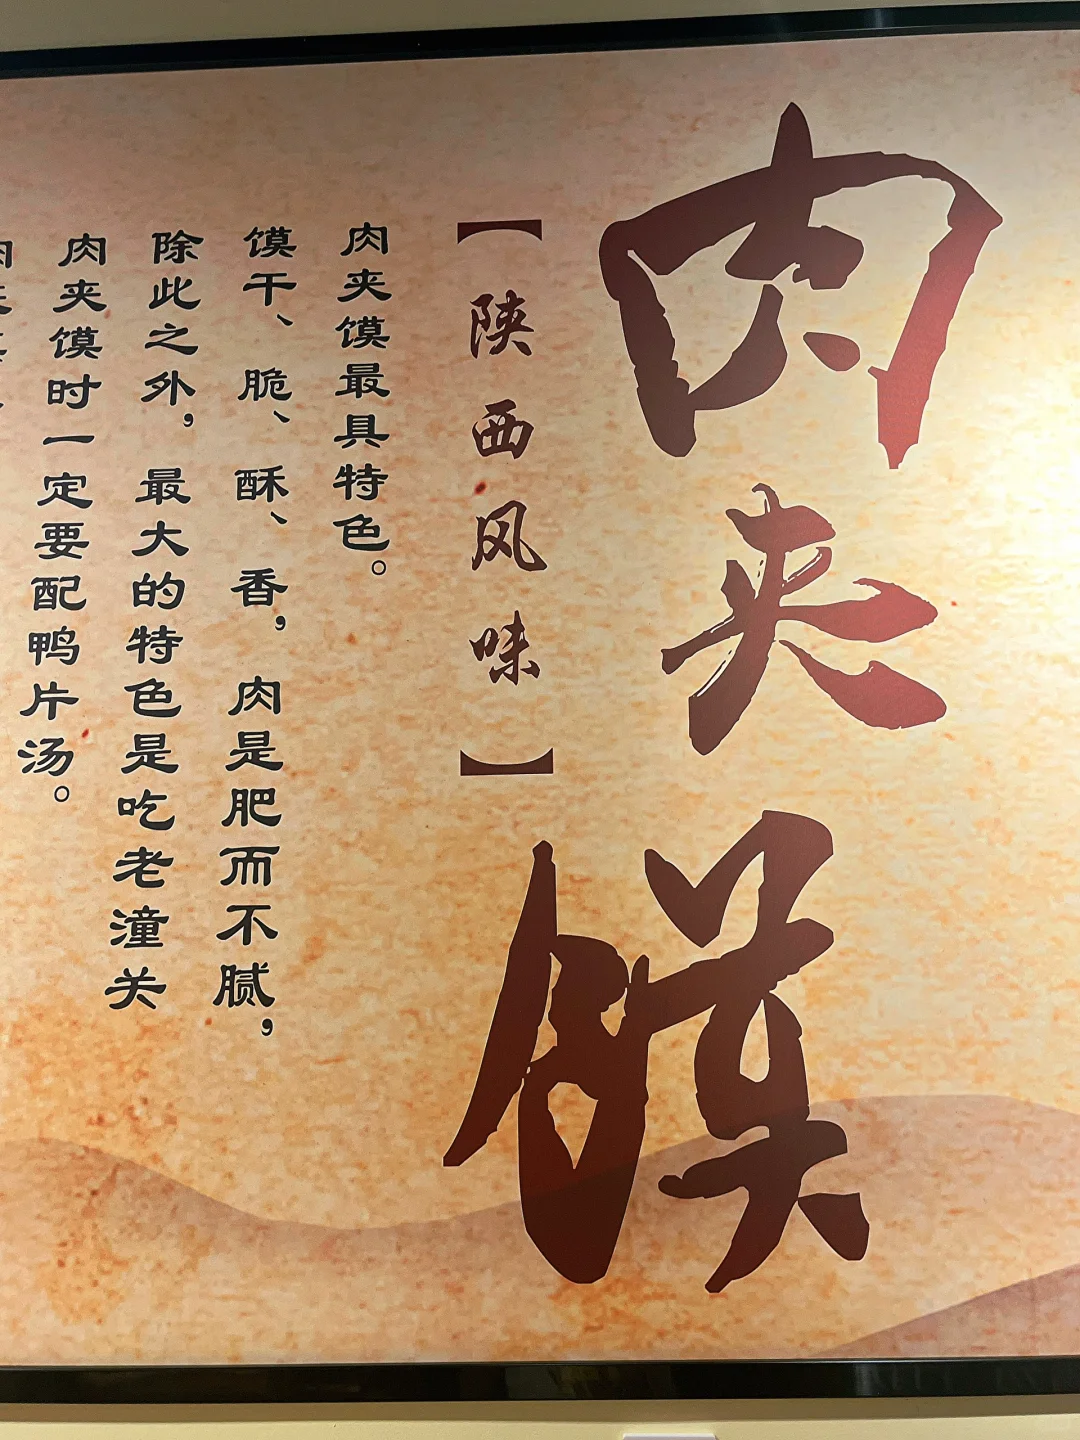 肉夹馍
【陕西风味】
肉夹馍最具特色。
馍干、脆、酥、香，肉是肥而不腻，
除此之外，最大的特色是吃老潼关
肉夹馍时一定要配鸭片汤。